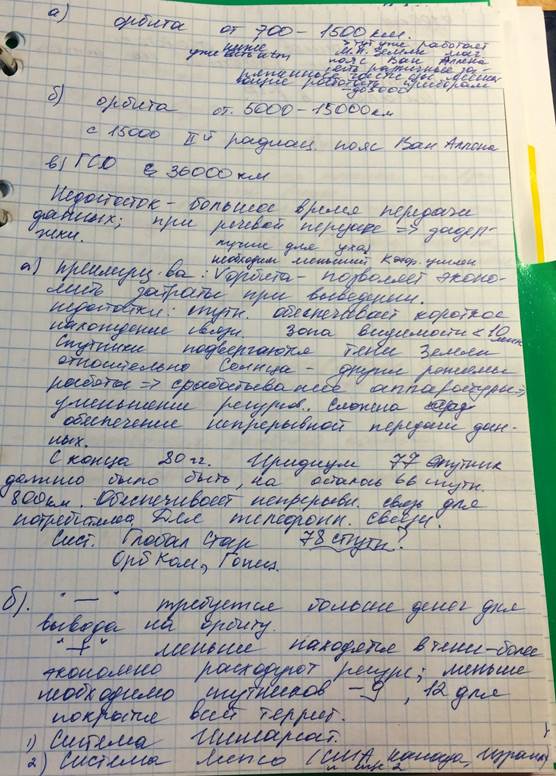 а) орбита от 700 – 1500 км.
ниже уже
тут уже работает
М.П. Земли
пояс Ван Аллена
работать приборам
б) орбита от 5000 – 15000 км
с 15000 IIй радиац. пояс Ван Аллена
в) ГСО 36000 км
Недостаток – большое время передачи
данных; при речевой => задер-
жки.
лучше для
необходим меньший коэф. усилен
а) преимущ-ва: орбита – позволяет эконо-
мить затраты при выведении.
недостатки: спутн. обеспечивает короткое
нахождение связи. Зона видимости < 10 мин
Спутники подвергаются тени Земли
относительно Солнца – другие режимы
работы => срабатывание аппаратуры =>
уменьшение ресурсов. Сложна
обеспечение непрерывной передачи дан-
ных.
С конца 80 гг. Иридиум 77 спутник
должно было быть, но осталось 66 спутн.
800 км. Обеспечивает непрерывн. связь для
потребителя. Для телефонн. связи.
Сист. Глобал Стар 78 спутн?
Орб Ком, Гонец.
б). "—" требуется больше денег для
вывода на орбиту.
"+" меньше находятся в тени – более
экономно расходуют ресурс; меньше
необходимо спутников – 9, 12 для
покрытия всей террит.
1) Система
2) Система (США, Канада,